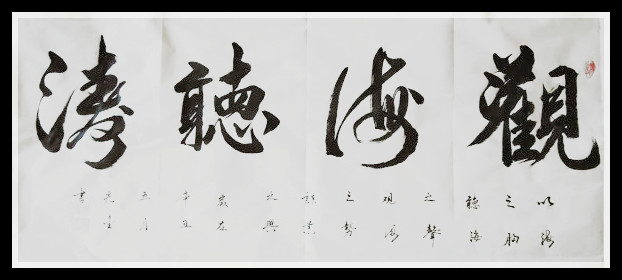 觀海聽濤
以海
之胸
聽海
之聲
觀
之勢
之興
歲在
辛丑
五月
書